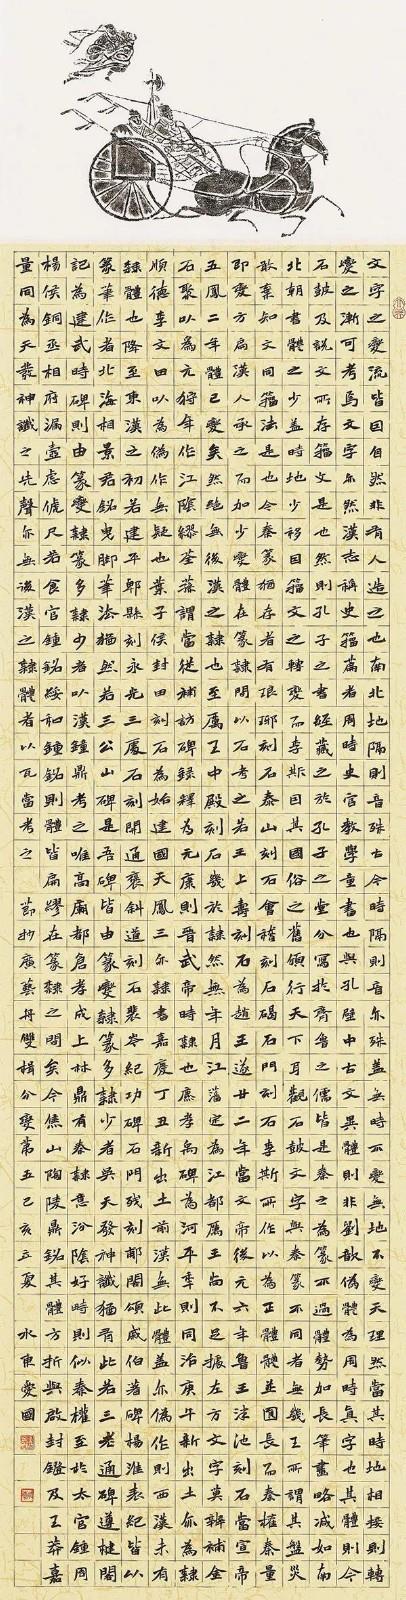 文字之變流皆因自然非有人造之也南北地隔則音殊古今時隔則音亦殊蓋無時不變無地不變天理然當其時地相接則轉
變之漸可考焉文字亦然漢志稱史籀篇者周時史官教學童書也與孔壁中古文異體則非劉歆偽體為周時真字也其體則今
石鼓及說文所存籀文是也然則孔子之書經藏之於孔子之堂分寫於齊魯之儒皆是秦之為篆不過體勢加長筆畫略減如南
北朝書體之少益時地少移因籀文之轉變而李斯因其國俗之舊頒行天下耳觀石鼓文字與秦篆不同者無幾王所謂其盤災
敢棄知文同籀法是也今秦篆猶存者有琅琊刻石泰山刻石會稽刻石碣石門刻石李斯所作以為正體體並圓長而秦權秦量
即變方扁漢人承之而加少變體在篆隸間以石考之若王上壽刻石為趙王遂廿二年當文帝後元六年魯王泮池刻石當宣帝
五鳳二年體已變矣然絕無後漢之隸也至厲王中殿刻石幾於隸然無年月江藩定為江都厲王尚不足振左方文字莫辨補金
石聚以為元狩年作江陰繆荃蓀謂當從補訪碑錄釋為元康則晉武帝時隸也廉孝禹碑為河平年則同治庚午新出土亦為隸
順德李文田以為偽作無疑也葉子侯封田刻石為始建國天鳳三亦隸書嘉慶丁丑新出土前漢無此體蓋亦偽作則西漢未有
隸體也降至東漢之初若建郙縣永光三處石刻開通褒斜道刻石裴岑紀功碑石門殘刻郙閣頌戚伯著碑楊淮表紀皆以
篆筆作者北海相景君銘曳腳筆法猶然若三公山碑是吾碑皆由篆變隸篆多隸少者吳天發神讖猶有此若三老通碑尊楗閣
記為建武時碑則由篆變隸篆多隸少者以漢鐘鼎考之唯高廟都倉孝成上林鼎有秦隸意汾陰好時則似秦權至於太官鍾周
楊侯銅丞相府漏壺慮俿尺若食官鍾銘綏和鍾銘則體皆扁繆在篆隸之間矣今焦山陶陵鼎銘其體方折與啟封鐙及王莽嘉
量同為天發神讖之先聲亦無後漢之隸體者以瓦當考之 節抄廣藝舟雙楫分變第五己亥立夏 水東愛國